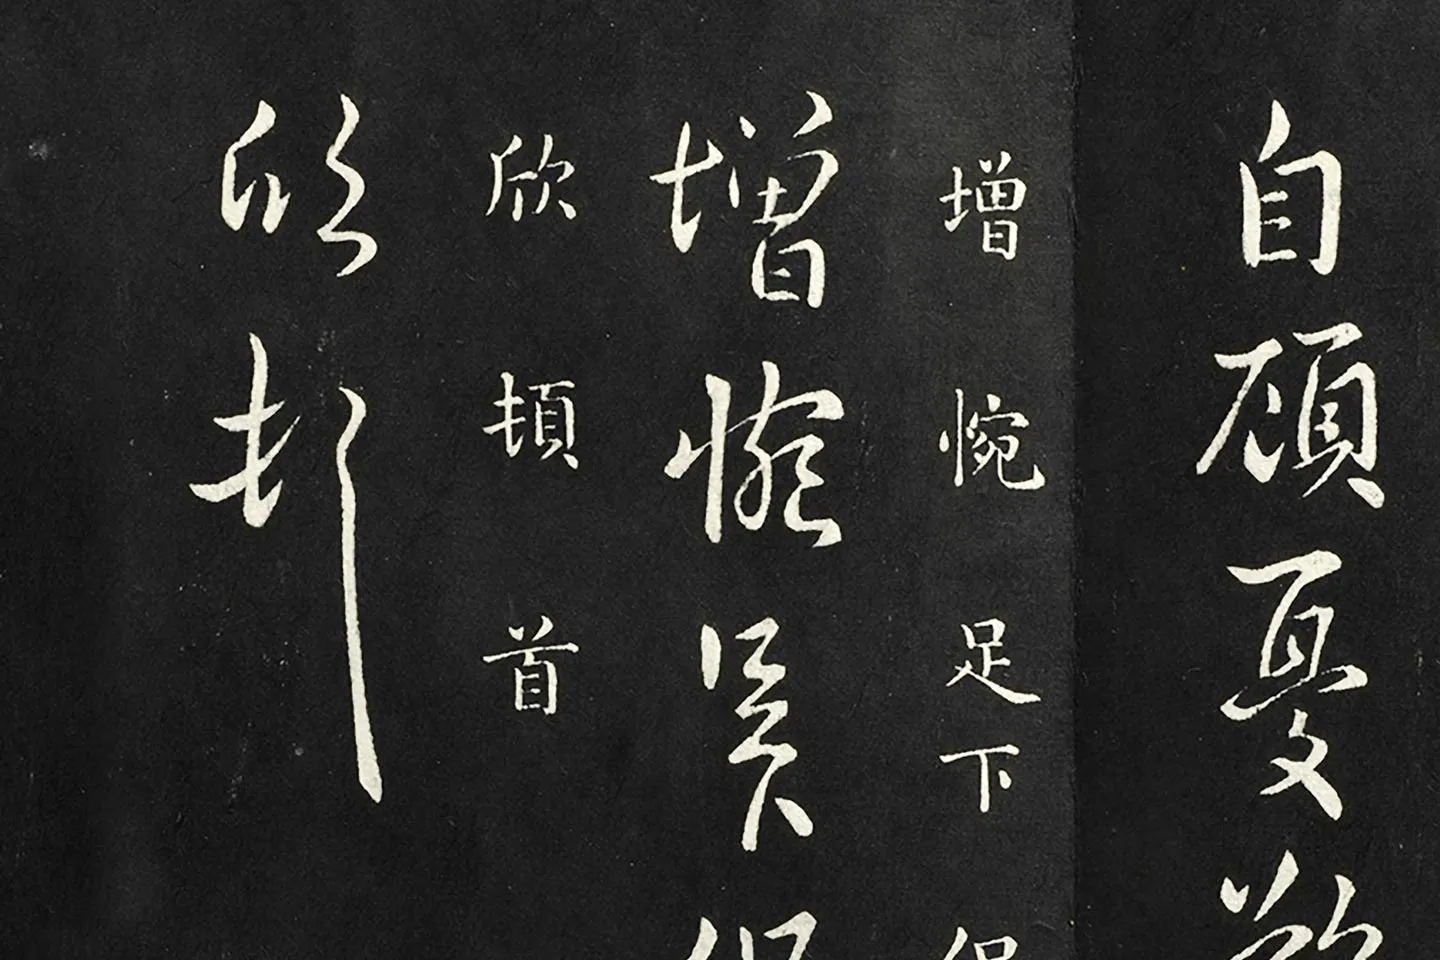 自顧憂
增惋足下
增惋足下
欣頓首
欣頓首